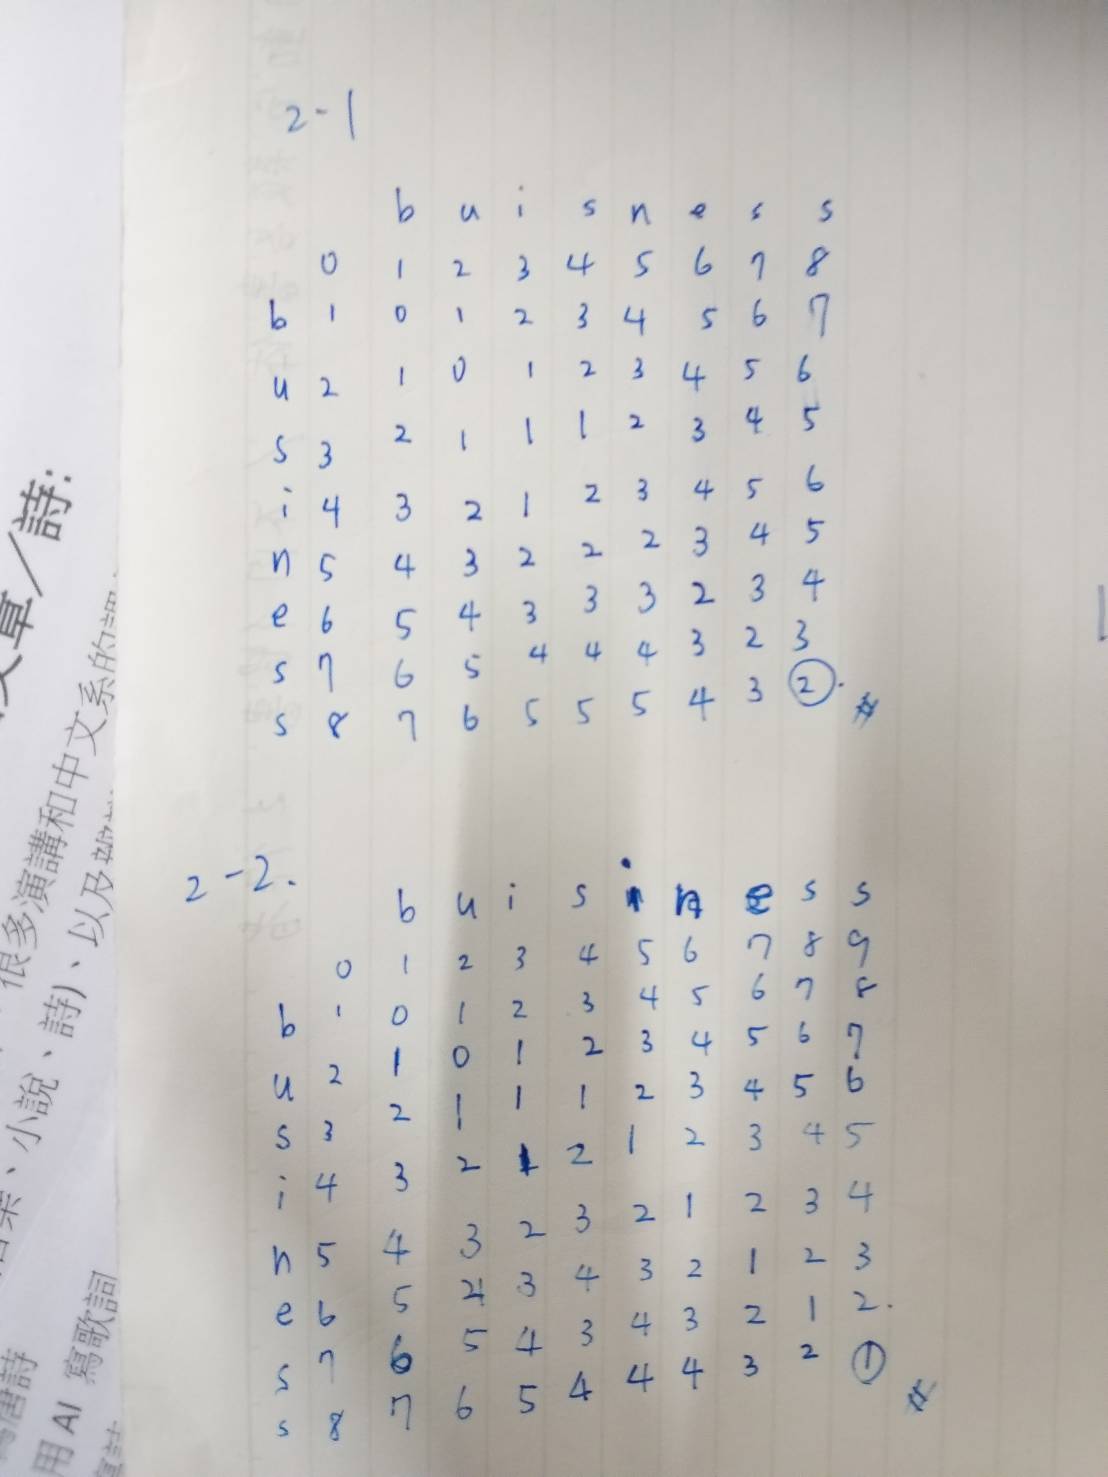 2-1
b u i s n e s s
0 1 2 3 4 5 6 7 8
b 1 0 1 2 3 4 5 6 7
u 2 1 0 1 2 3 4 5 6
s 3 2 1 1 1 2 3 4 5
i 4 3 2 1 2 3 4 5 6
n 5 4 3 2 2 2 3 4 5
e 6 5 4 3 3 3 2 3 4
s 7 6 5 4 4 4 3 2 3
s 8 7 6 5 5 5 4 3 2. #
2-2.
b u i s i n e s s
0 1 2 3 4 5 6 7 8 9
b 1 0 1 2 3 4 5 6 7 8
u 2 1 0 1 2 3 4 5 6 7
s 3 2 1 1 1 2 3 4 5 6
i 4 3 2 1 2 1 2 3 4 5
n 5 4 3 2 3 2 1 2 3 4
e 6 5 4 3 4 3 2 1 2 3
s 7 6 5 4 3 4 3 2 1 2.
s 8 7 6 5 4 4 4 3 2 1 #
章/詩:
很多演講和中文系的
、小說、詩)、以及
唐詩
用 AI 寫歌詞